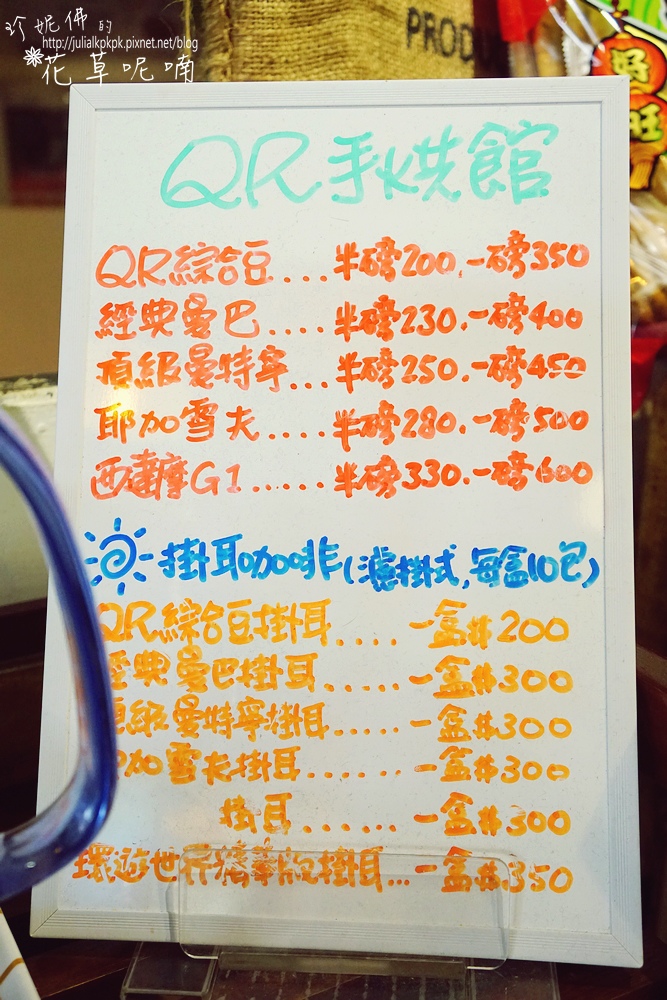 珍妮佛的
http://julialkpkpk.pixnet.net/blog
花草呢喃
PRODU
好旺
QR手烘館
QR綜合豆....半磅200.一磅350
經典曼巴....半磅230.一磅400
頂級曼特寧...半磅250.一磅450
耶加雪夫....半磅280.一磅500
西達摩G1......半磅330.一磅600
掛耳咖啡(濾掛式,每盒10包)
QR綜合豆掛耳....一盒#200
經典曼巴掛耳......一盒#300
頂級曼特寧掛耳.....一盒#300
加雪夫掛耳......一盒#300
掛耳......一盒#300
環遊世界精華版掛耳...一盒#350